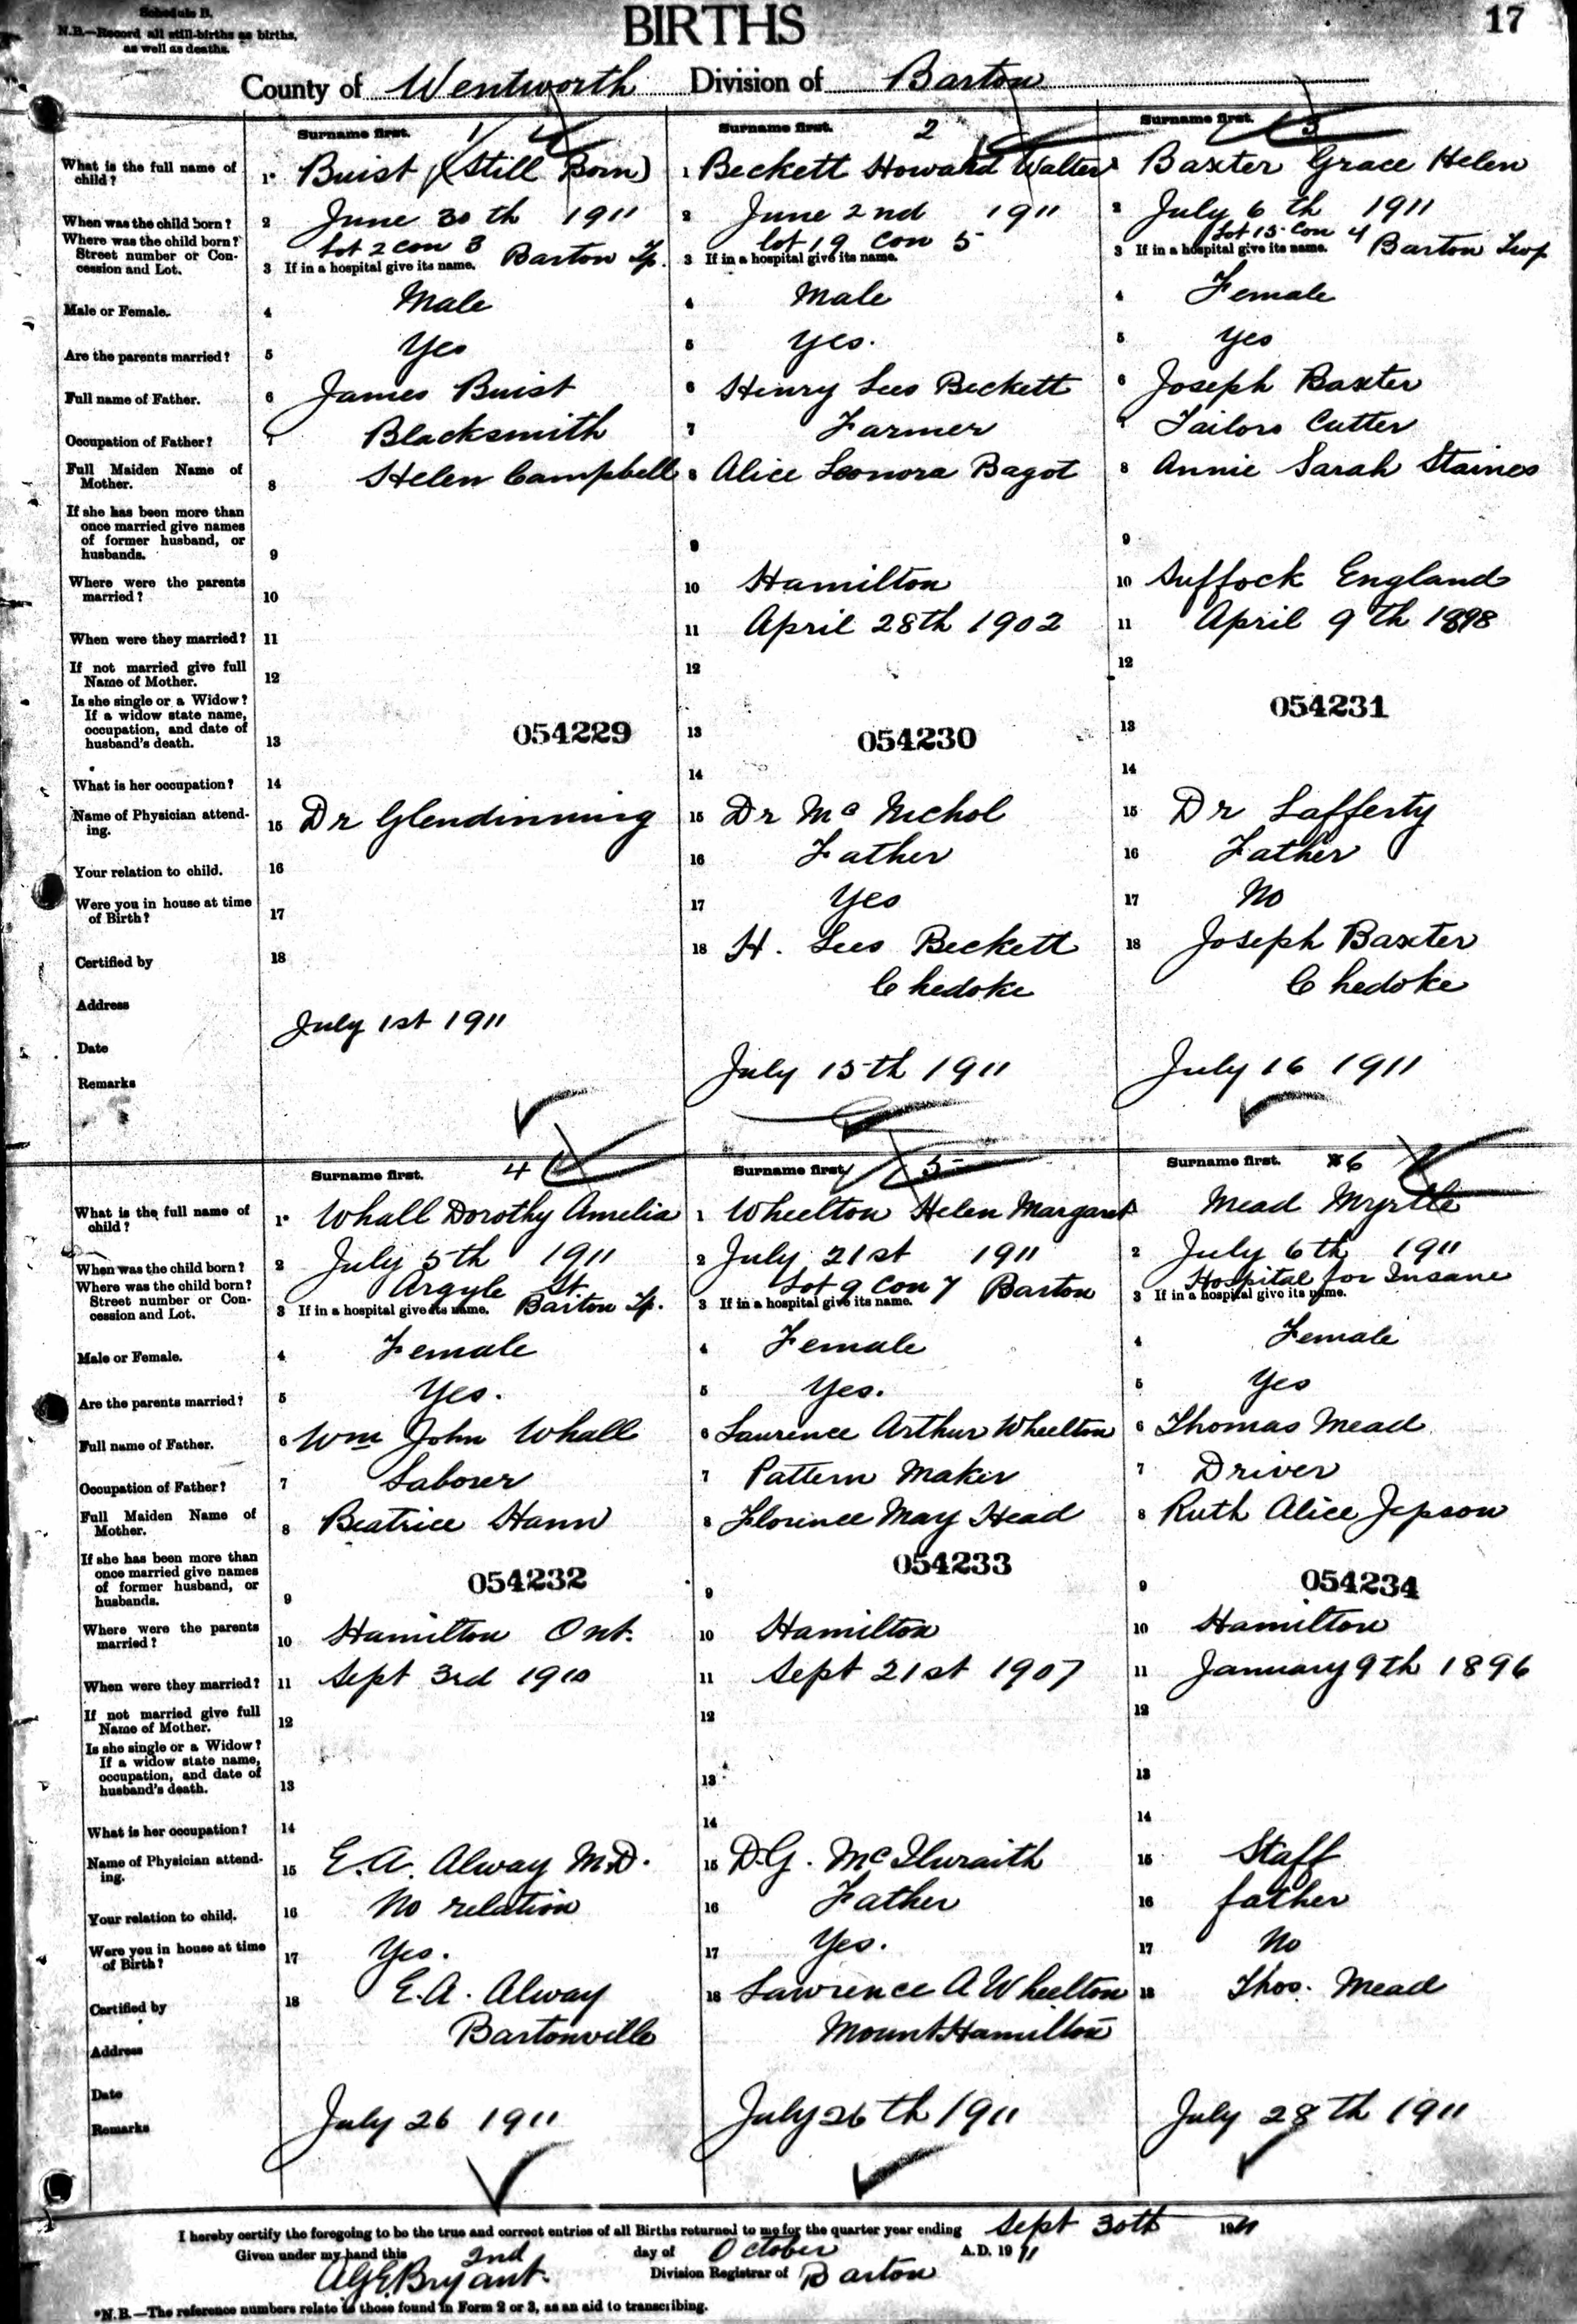 Schedule B.
N.B.—Record all still-births as births,
as well as deaths.
BIRTHS
17
County of Wentworth Division of Barton
Surname first. 1
Surname first. 2
Surname first. 3
What is the full name of
child?
1* Buist (Still Born)
1 Beckett Howard Walter
Baxter Grace Helen
When was the child born?
2 June 30th 1911
2 June 2nd 1911
2 July 6th 1911
Where was the child born?
Street number or Con-
cession and Lot.
Lot 2 con 3
3 If in a hospital give its name. Barton Tp.
lot 19 con 5
3 If in a hospital give its name.
Lot 15 Con 4
3 If in a hospital give its name. Barton Twp
Male or Female.
4 Male
4 Male
4 Female
Are the parents married?
5 Yes
5 Yes.
5 Yes
Full name of Father.
6 James Buist
6 Henry Lees Beckett
6 Joseph Baxter
Occupation of Father?
7 Blacksmith
7 Farmer
7 Tailors Cutter
Full Maiden Name of
Mother.
8 Helen Campbell
8 Alice Leonora Bagot
8 Annie Sarah Staines
If she has been more than
once married give names
of former husband, or
husbands.
9
9
9
Where were the parents
married?
10
10 Hamilton
10 Suffock England
When were they married?
11
11 April 28th 1902
11 April 9th 1898
If not married give full
Name of Mother.
12
12
12
Is she single or a Widow?
If a widow state name,
occupation, and date of
husband's death.
13 054229
13 054230
13 054231
What is her occupation?
14
14
14
Name of Physician attend-
ing.
15 Dr Glendinning
15 Dr McNichol
15 Dr Lafferty
Your relation to child.
16
16 Father
16 Father
Were you in house at time
of Birth?
17
17 Yes
17 No
Certified by
18
18 H. Lees Beckett
18 Joseph Baxter
Address
Chedoke
Chedoke
Date
July 1st 1911
July 15th 1911
July 16 1911
Remarks
Surname first. 4
Surname first. 5
Surname first. 6
What is the full name of
child?
1* Whall Dorothy Amelia
1 Wheelton Helen Margaret
Mead Myrtle
When was the child born?
2 July 5th 1911
2 July 21st 1911
2 July 6th 1911
Where was the child born?
Street number or Con-
cession and Lot.
Argyle St
3 If in a hospital give its name. Barton Tp.
Lot 9 con 7 Barton
3 If in a hospital give its name.
Hospital for Insane
3 If in a hospital give its name.
Male or Female.
4 Female
4 Female
4 Female
Are the parents married?
5 Yes.
5 Yes.
5 Yes
Full name of Father.
6 Wm John Whall
6 Laurence Arthur Wheelton
6 Thomas Mead
Occupation of Father?
7 Laborer
7 Pattern Maker
7 Driver
Full Maiden Name of
Mother.
8 Beatrice Hann
8 Florence May Head
8 Ruth Alice Jepson
If she has been more than
once married give names
of former husband, or
husbands.
9 054232
9 054233
9 054234
Where were the parents
married?
10 Hamilton Ont.
10 Hamilton
10 Hamilton
When were they married?
11 Sept 3rd 1910
11 Sept 21st 1907
11 January 9th 1896
If not married give full
Name of Mother.
12
12
12
Is she single or a Widow?
If a widow state name,
occupation, and date of
husband's death.
13
13
13
What is her occupation?
14
14
14
Name of Physician attend-
ing.
15 E.A. Alway M.D.
15 D.G. McIlwraith
15 Staff
Your relation to child.
16 No relation
16 Father
16 father
Were you in house at time
of Birth?
17 Yes.
17 Yes.
17 No
Certified by
18 E.A. Alway
18 Lawrence A Wheelton
18 Thos. Mead
Address
Bartonville
Mount Hamilton
Date
July 26 1911
July 26th 1911
July 28th 1911
Remarks
I hereby certify the foregoing to be the true and correct entries of all Births returned to me for the quarter year ending Sept 30th 1911
Given under my hand this 2nd day of October A.D. 1911
AGE Bryant. Division Registrar of Barton
*N.B.—The reference numbers relate to those found in Form 2 or 3, as an aid to transcribing.